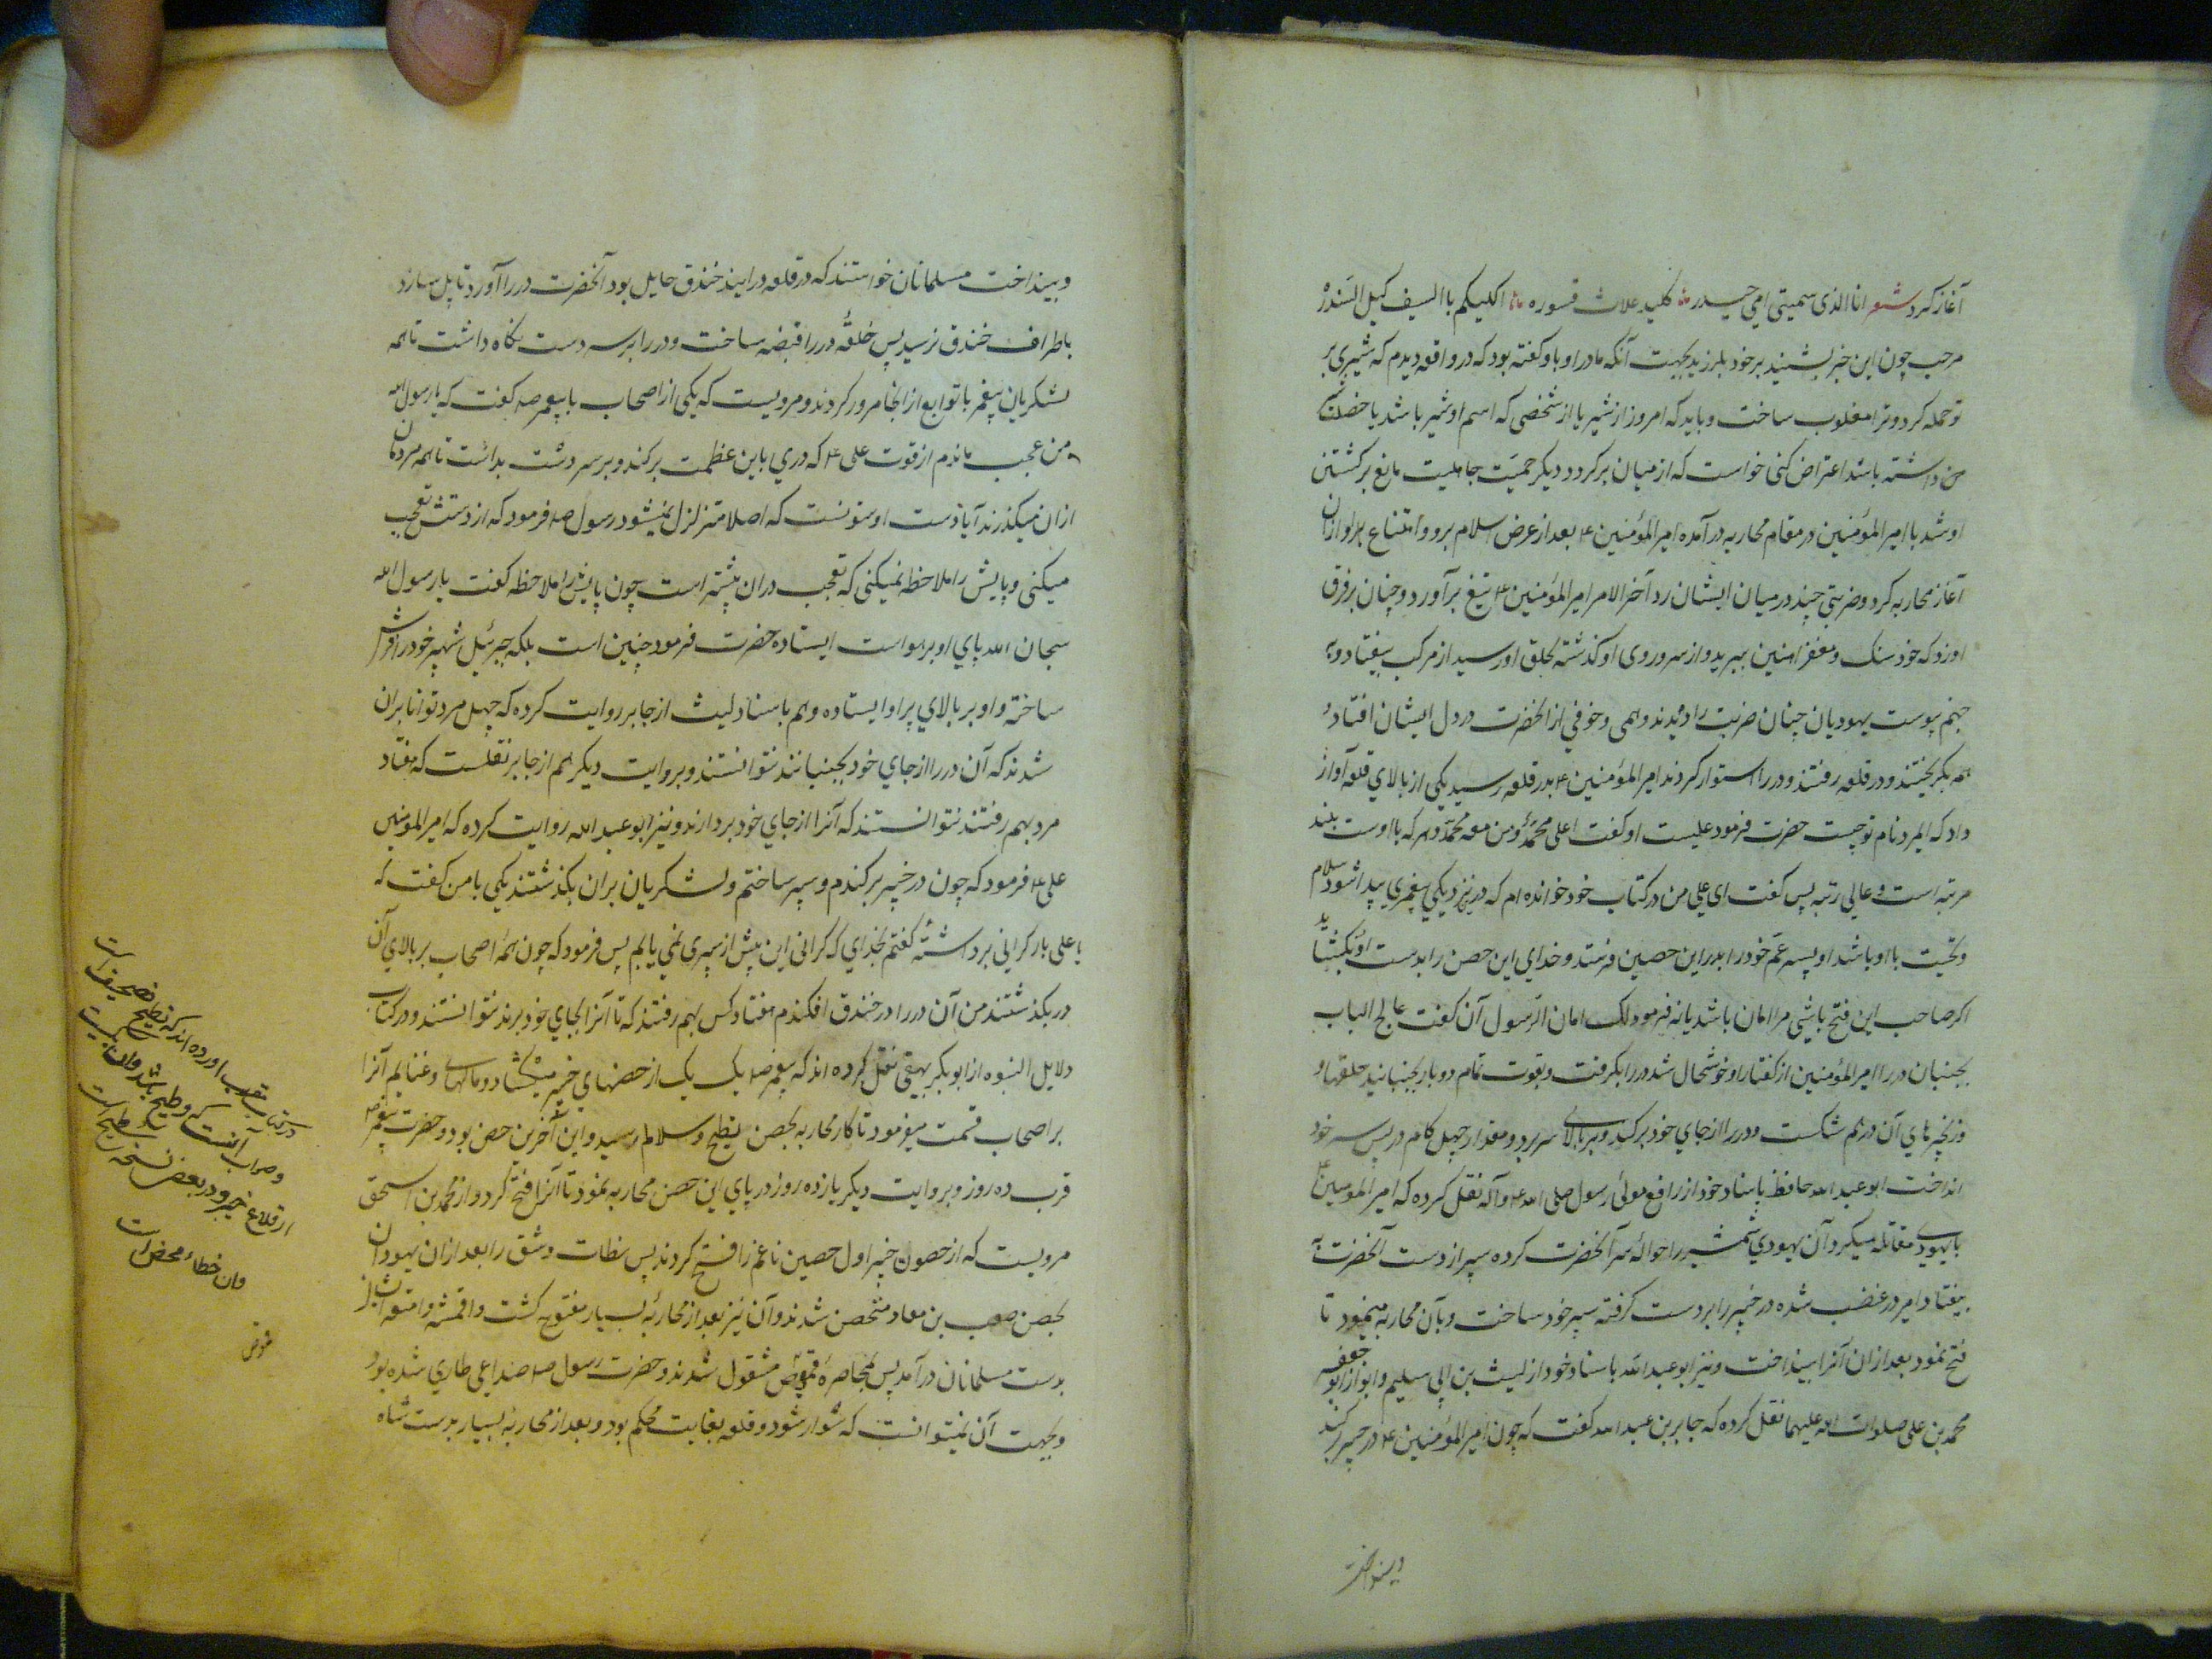 آغاز کرد شعر انا الذی سمیتی امی حیدره کلیث غلاث قسوره اکلیکم با السیف کیل السندر
مرحب چون این خبر بشنید بر خود بلرزید بجهت آنکه مادر او باو کفته بود که در واقعه دیدم که شیری بر
تو حمله کرد و ترا مغلوب ساخت و باید که امروز از شیر یا از شخصی که اسم او شیر باشد یا خصلت
داشته باشد اعتراض کنی خواست که از میان بر کردد دیکر حمیّت جاهلیت مانع برکشتن
او شد با امیر المؤمنین در مقام محاربه در آمده امیر المؤمنین ع بعد از عرض اسلام برو و امتناع او از آن
آغاز محاربه کرد و ضربتی چند در میان ایشان رد آخر الامر امیر المؤمنین ع تیغ برآورد و چنان بر فرق
او زد که خود سنک و مغفر اهنین ببرید و از سر و روی او کذشته بحلق او رسید از مرکب بیفتاد و به
جهنم پیوست یهودیان چنان ضربت را دیدند وهمی و خوفی از انحضرت در دل ایشان افتاد و
همه بکریختند و در قلعه رفتند و در را استوار کردند امیر المؤمنین ع بدر قلعه رسید یکی از بالای قلعه آواز
داد که ایمرد نام تو چیست حضرت فرمود علیست او کفت اعلی محمّد و من معه محمد و هر که با اوست بلند
مرتبه است و عالی رتبه پس کفت ای علی من در کتاب خود خوانده ام که درین نزدیکی پیغمبری پیدا شود سلام
و تحیت با او باشد او پسر عمّ خود را بدر این حصین فرستد و خدای این حصن را بدست او بکشاید
اکر صاحب این فتح باشی مرا امان باشد یا نه فرمود لک امان الرسول آن کفت عالج الباب
بجنبان در را امیر المؤمنین از کفتار او خوشحال شد در را بکرفت و بقوت تمام دو بار بجنبانید حلقها و
زنجیرهای آن در هم شکست و در را از جای خود برکند و بر بالای سر برد و مقدار چهل کام در پس سر خود
انداخت ابو عبد الله حافظ باسناد خود از رافع مولی رسول صلی الله ع و آله نقل کرده که امیر المؤمنین ع
با یهودی مقاتله میکرد آن یهودی شمشیر را حواله سر آنحضرت کرده سپر از دست آنحضرت
بیفتاد امیر در غضب شده در خیبر را بر دست کرفته سپر خود ساخت و بآن محاربه مینمود تا
فتح نمود بعد از ان آنرا بینداخت و نیز ابو عبد الله باسناد خود از لیث بن ابی سلیم و او از ابو جعفر
محمد بن علی صلوات الله علیهما نقل کرده که جابر بن عبد الله کفت که چون امیر المؤمنین ع در خیبر برکند
وبینداخت
وبینداخت مسلمانان خواستند که در قلعه درایند خندق حایل بود آنحضرت در را آورد تا پل سازد
باطراف خندق نرسید پس حلقّه در را قبضه ساخت و در را بر سر دست نکاه داشت تا همه
لشکریان پیغمبر با توابع از انجا مرور کردند و مرویست که یکی از اصحاب با پیغمبر ص کفت که یا رسول الله
من عجب ماندم از قوت علی ع که دری باین عظمت برکند و بر سر دست بداشت تا همه مردمان
ازان میکذرند آیا دست او ستونست که اصلا متزلزل نمیشود رسول ص فرمود که از دستش تعجب
میکنی و پایش را ملاحظه نمیکنی که تعجب دران بیشتر است چون پایش را ملاحظه کفت یا رسول الله
سبحان الله پای او بر هواست ایستاده حضرت فرمود چنین است بلکه جبرئیل شهپر خود را فرش
ساخته و او بر بالای پر او ایستاده و هم باسناد لیث از جابر روایت کرده که چهل مرد توانا بران
شدند که آن در را از جای خود بجنبانند نتوانستند و بروایت دیکر هم از جابر نقلست که هفتاد
مرد بهم رفتند نتوانستند که آنرا از جای خود بردارند و نیز ابو عبد الله روایت کرده که امیر المؤمنین
علی ع فرمود که چون در خیبر برکندم و سپر ساختم و لشکریان بران بکذشتند یکی با من کفت که
یا علی بار کرانی برداشته کفتم بخدای که کرانی این بیش از سپری نمی یابم پس فرمود که چون همه اصحاب بر بالای آن
در بکذشتند من آن در را در خندق افکندم هفتاد کس بهم رفتند که تا آنرا بجای خود برند نتوانستند و در کتاب
دلایل النبوه از ابو بکر بیهقی نقل کرده اند که پیغمبر ص یک یک از حصنهای خیبر میکشاد و مالهای و غنایم آنرا
بر اصحاب قسمت میفرمود تا کار محاربه بحصن ینطیح و سلالم رسید و این آخرین حصن بود و حضرت پیغمبر ص
قرب ده روز و بروایت دیکر یازده روز در پای این حصن محاربه نمود تا آنرا فتح کرد و از محمد بن اسحق
مرویست که از حصون خیبر اول حصین ناعم را فتح کردند پس نطات وشق را بعد ازان یهودان
بحصن صعب بن معاد متحصن شدند و آن نیز بعد از محاربه بسیار مفتوح کشت و اقمشه و امتعه ایشان
بدست مسلمانان در آمد پس بمحاصره قموص مشغول شدند و حضرت رسول ص صداعی طاری شده بود
و بجهت آن نمیتوانست که سوار شود و قلعه بغایت محکم بود و بعد از محاربه بسیار بدست شاه
در کتاب اورده اند که نطیح تصحیف است
وصواب آنست که وطیح باشد وان
از قلاع خیبر و در بعضی نسخه سطیح است
وان خطاء محض است